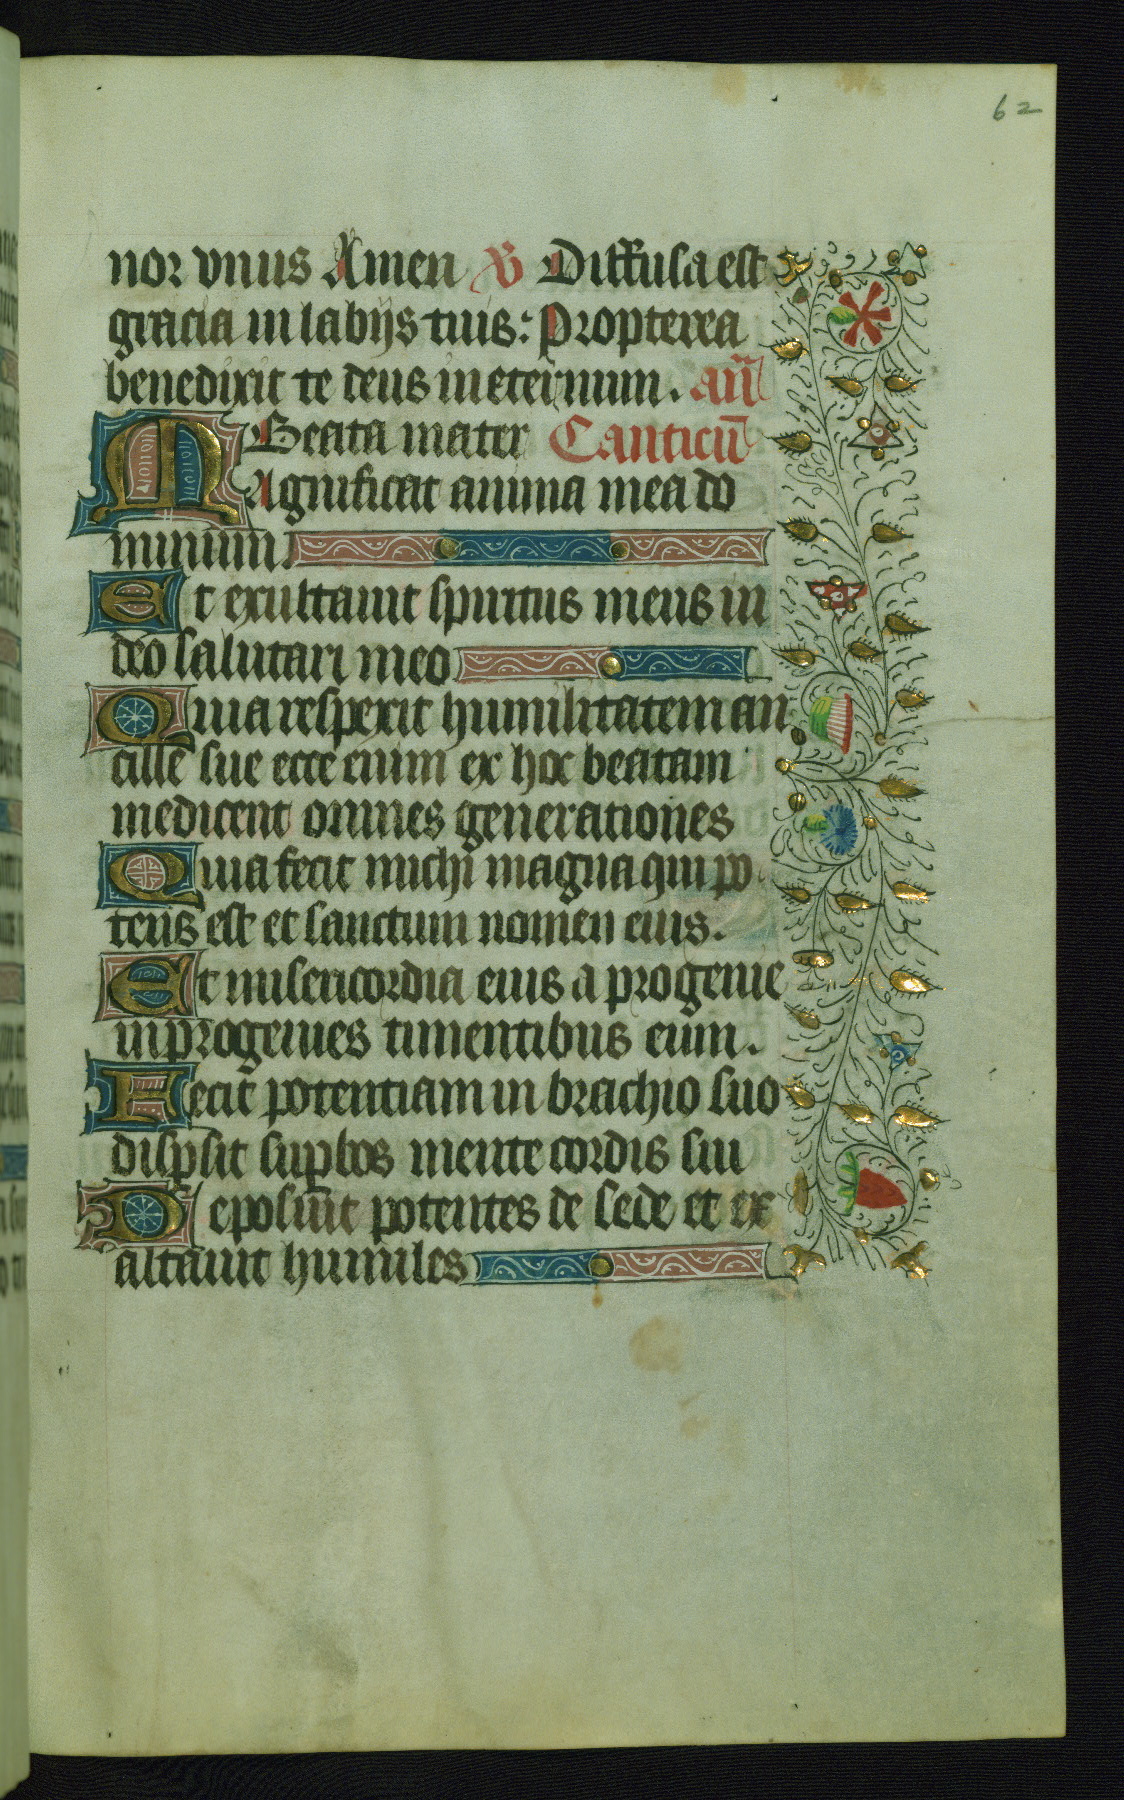 62
nor vnius Amen ℣ Diffusa est
gracia in labijs tuis: Propterea
benedixit te deus in eternum. an̄
Beata mater Canticū
Magnificat anima mea do
minum.
Et exultauit spiritus meus in
deo salutari meo
Quia respexit humilitatem an
cille sue ecce enim ex hoc beatam
me dicent omnes generationes
Quia fecit michi magna qui po
tens est et sanctum nomen eius.
Et misericordia eius a progenie
in progenies timentibus eum.
Fecit potentiam in brachio suo
disꝑsit suꝑbos mente cordis sui
Deposuīt potentes de sede et ex
altauit humiles